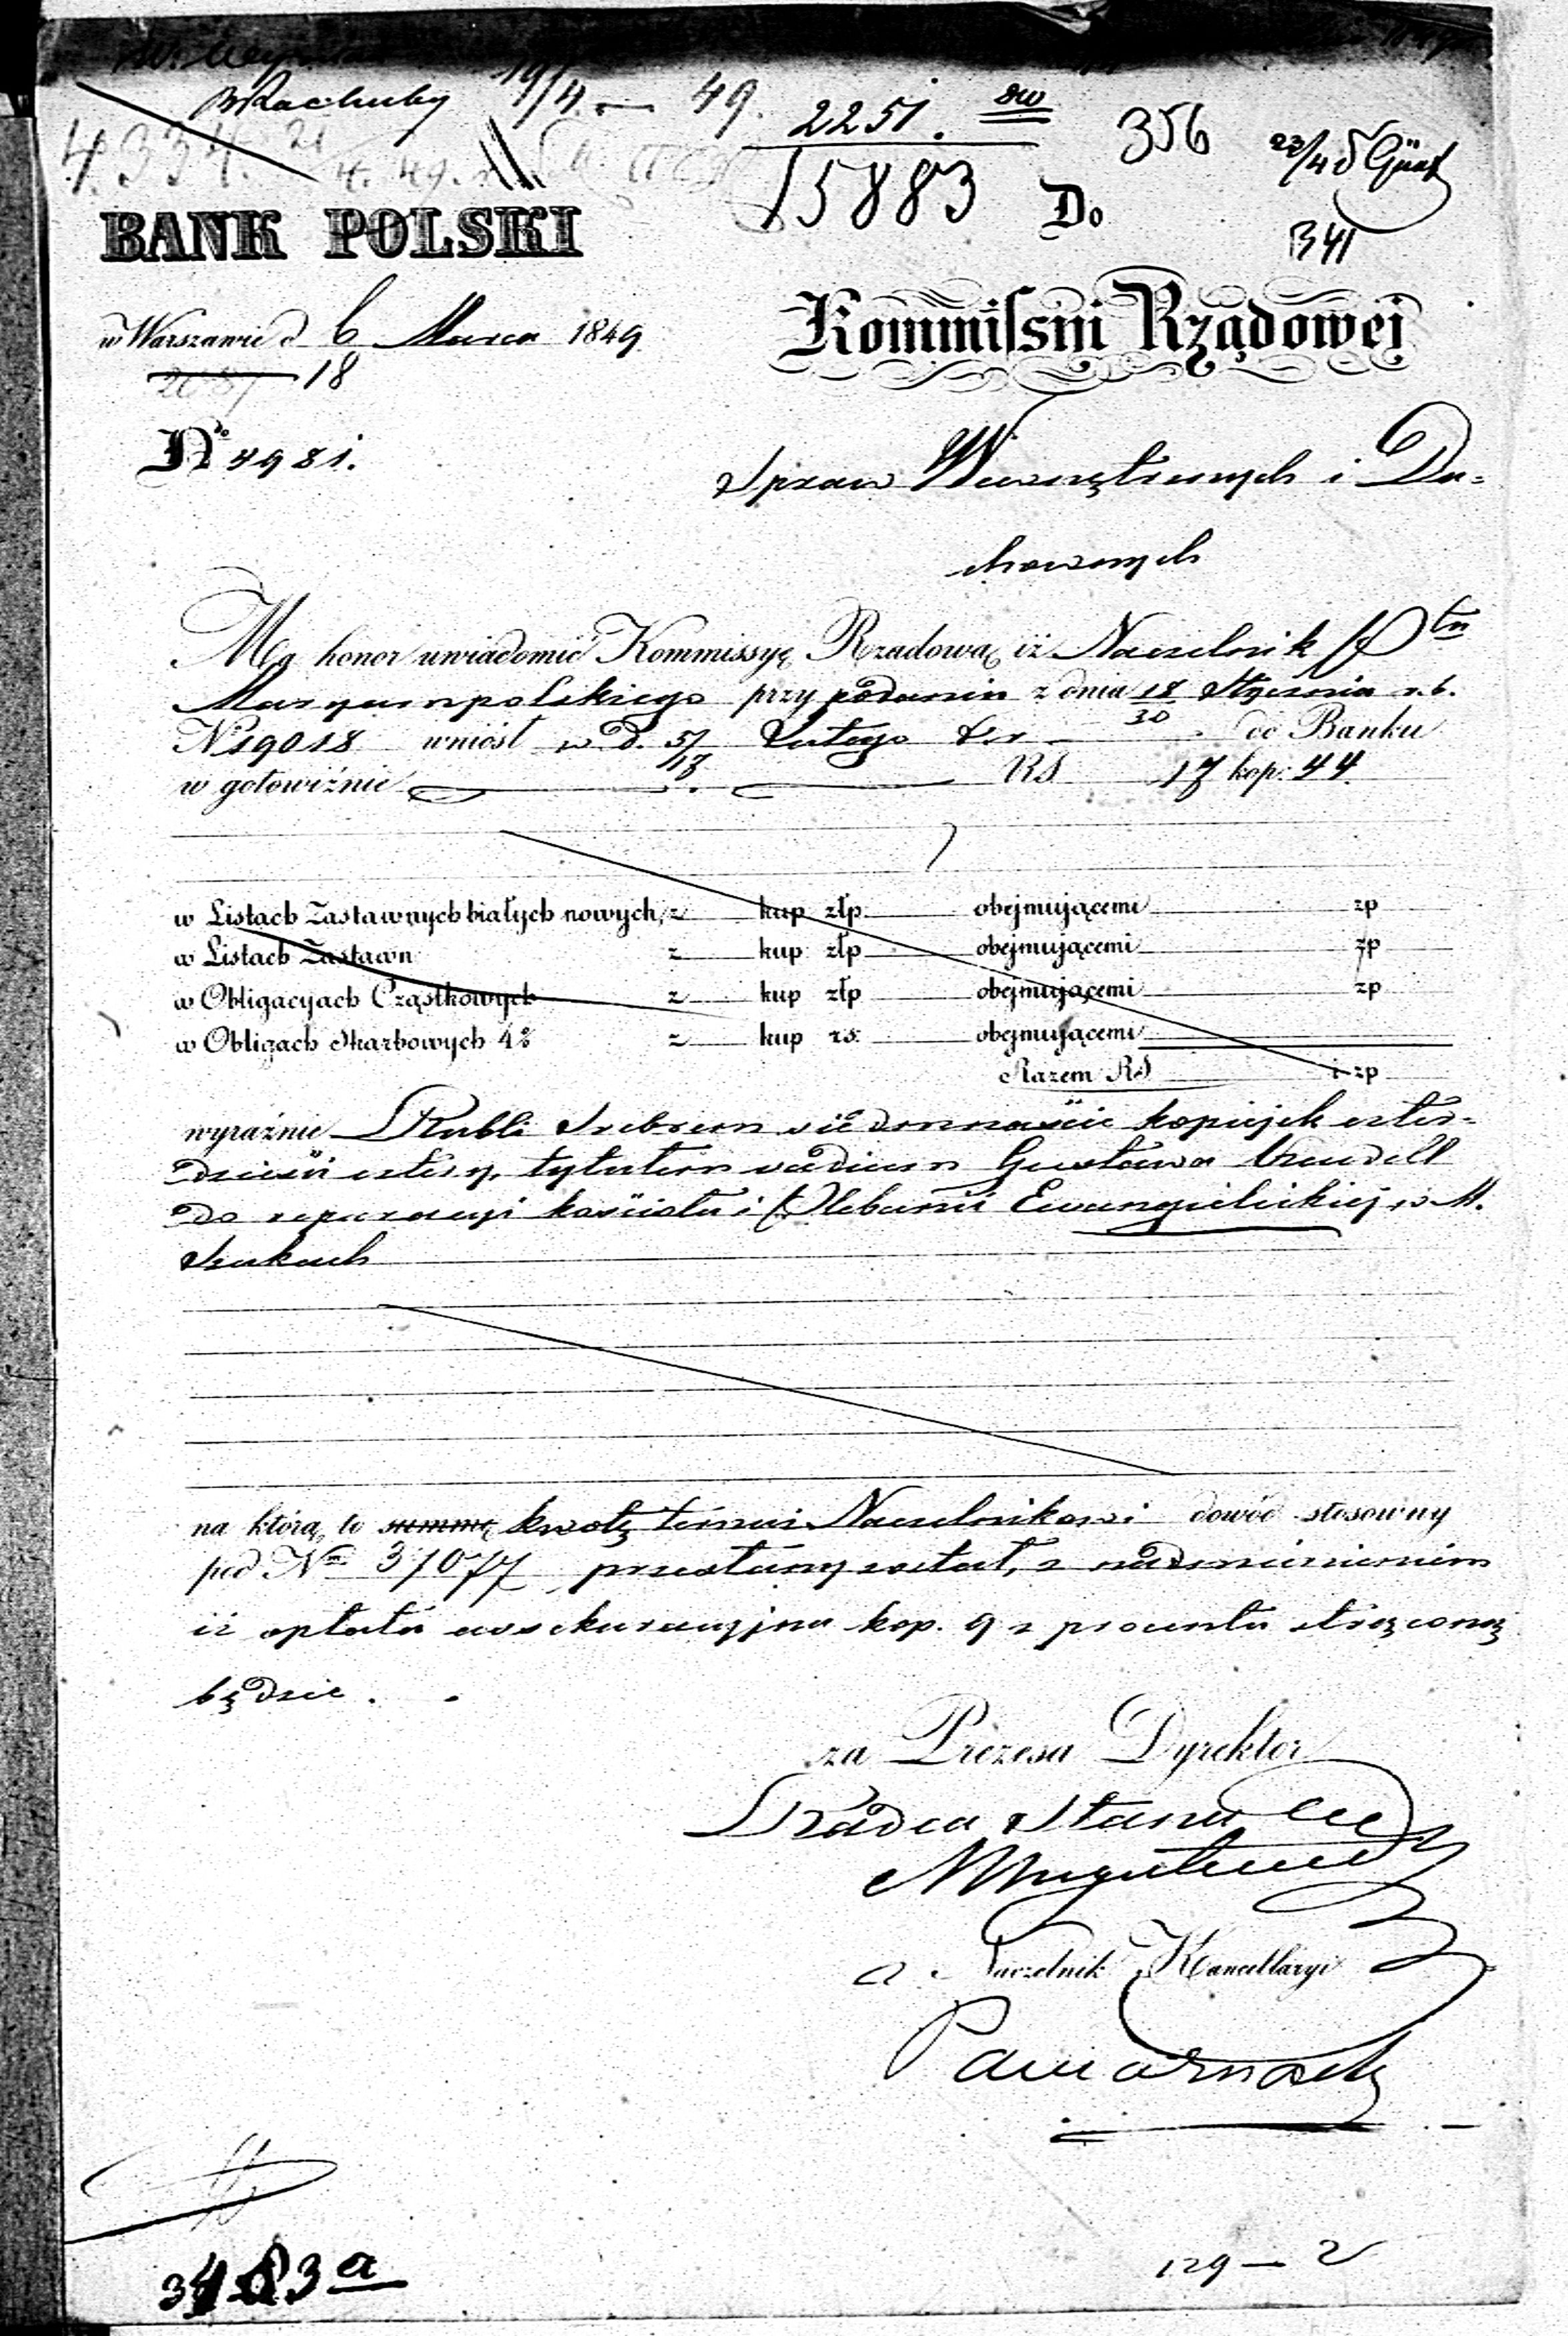 Rachuby 19/4 — 49.
2251.
15883
356
23/4
341
4334. 21/4. 49.
BANK POLSKI
Do
w Warszawie d 6 Marca 1849
18
Kommissyi Rządowej
No 4981.
Spraw Wewnętrznych i Du=
chownych
Ma honor uwiadomić Kommissyę Rządową iż Naczelnik Ptu
Maryampolskiego przy podaniu z dnia 18/30 Stycznia r. b.
No 19018 wniósł w d. 5/17 Lutego t. r. do Banku
w gotowiźnie RS 17 kop: 44
w Listach Zastawnych białych nowych, z kup złp obejmującemi zp
w Listach Zastawn z kup złp obejmującemi zp
w Obligacyach Cząstkowych z kup złp obejmującemi zp
w Obligach Skarbowych 4% z kup rs. obejmującemi
Razem RS i zp
wyraźnie Rubli Srebrem siedmnaście kopiejek czter=
dzieści cztery, tytułem vadium Gustawa
do reparacyi kościoła i Plebanii Ewangielickiej w M.
Szakach
na którą to summę kwotę temuż Naczelnikowi dowód stosowny
pod Nm 31077 przesłany został, z nadmienieniem
iż opłata assekuracyjna kop. 9 z procentu strąconą
będzie.
za Prezesa Dyrektor
Radca Stanu
Naczelnik Kancellaryi
3483 a
129 — 2